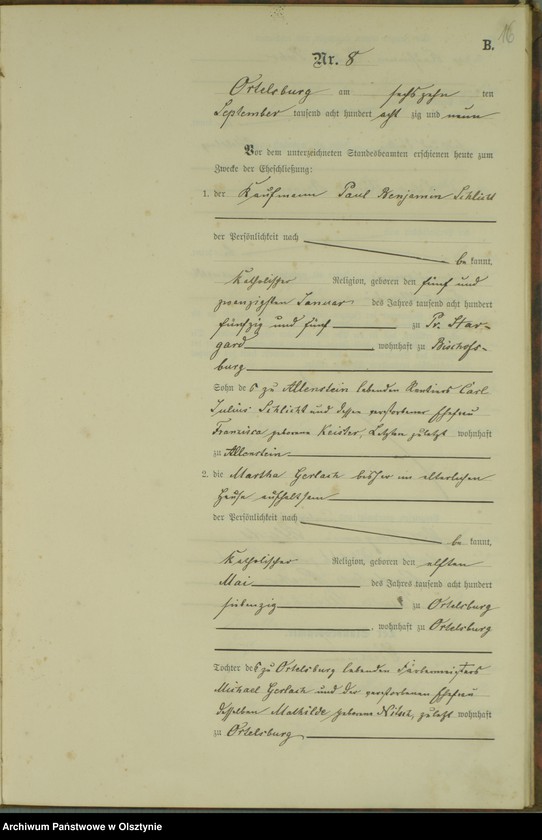 16
B.
Nr. 8
Ortelsburg am sechszehn ten
September tausend acht hundert acht zig und neun
Vor dem unterzeichneten Standesbeamten erschienen heute zum
Zwecke der Eheschließung:
1. der Kaufmann Paul Benjamin Schlicht
der Persönlichkeit nach
be kannt,
katholischer Religion, geboren den fünf und
zwanzigsten Januar des Jahres tausend acht hundert
fünfzig und fünf zu Pr. Star-
gard wohnhaft zu Bischofs-
burg
Sohn des zu Allenstein lebenden Rentiers Carl
Julius Schlicht und dessen verstorbener Ehefrau
Francisca geborene Keister, Letztere zuletzt wohnhaft
zu Allenstein
2. die Martha Gerlach bisher im elterlichen
Hause aufhaltsam
der Persönlichkeit nach
be kannt,
katholischer Religion, geboren den elften
Mai des Jahres tausend acht hundert
siebenzig zu Ortelsburg
, wohnhaft zu Ortelsburg
Tochter des zu Ortelsburg lebenden Färbermeisters
Michael Gerlach und der verstorbenen Ehefrau
desselben Mathilde geborene Nitsch, zuletzt wohnhaft
zu Ortelsburg
Archiwum Państwowe w Olsztynie